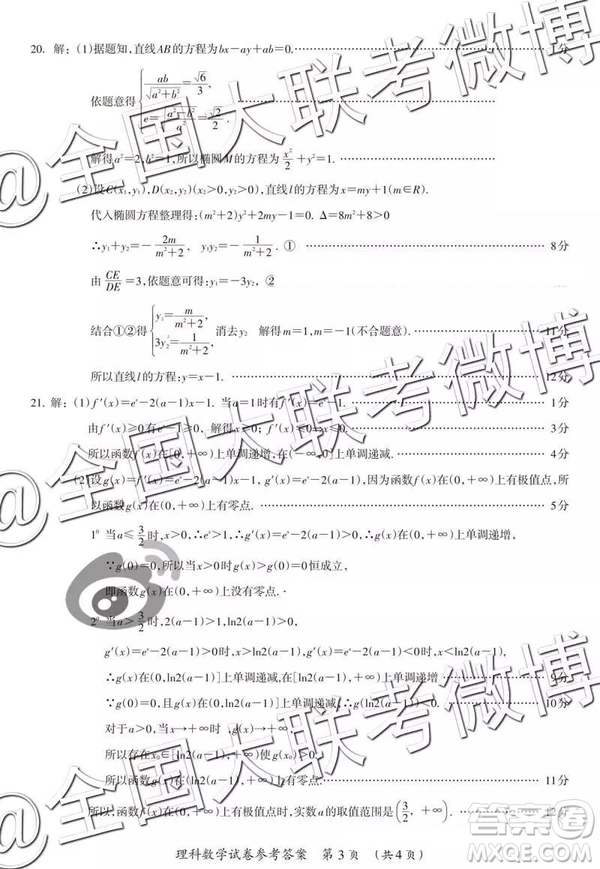 20. 解：(1)据题知,直线AB的方程为bx-ay+ab=0. 1分
依题意得 { ab/√(a²+b²)=√6/3, e=√(a²-b²)/a²=√2/2.
解得a²=2,b²=1,所以椭圆M的方程为x²/2+y²=1.
(2)设C(x₁,y₁),D(x₂,y₂)(x₂>0,y₂>0),直线l的方程为x=my+1(m∈R).
代入椭圆方程整理得:(m²+2)y²+2my-1=0. Δ=8m²+8>0
∴y₁+y₂=-2m/(m²+2), y₁y₂=-1/(m²+2). ① 8分
由CE/DE=3,依题意可得:y₁=-3y₂, ②
结合①②得 { y₂=m/(m²+2), 3y₂²=1/(m²+2), 消去y₂ 解得m=1,m=-1(不合题意). 11分
所以直线l的方程:y=x-1. 12分
21. 解：(1)f′(x)=eˣ-2(a-1)x-1. 当a=1时有f′(x)=eˣ-1. 1分
由f′(x)≥0有eˣ-1≥0, 解得x≥0; f′(x)≤0⇒x≤0.
所以函数f(x)在[0,+∞)上单调递增,在(-∞,0]上单调递减. 4分
(2)设g(x)=f′(x)=eˣ-2(a-1)x-1, g′(x)=eˣ-2(a-1),因为函数f(x)在(0,+∞)上有极值点,所
以函数g(x)在(0,+∞)上有零点. 5分
1° 当a≤3/2时,x>0,∴eˣ>1,∴g′(x)=eˣ-2(a-1)>0,∴g(x)在(0,+∞)上单调递增,
∵g(0)=0,所以当x>0时g(x)>g(0)=0恒成立,
即函数g(x)在(0,+∞)上没有零点.
2° 当a>3/2时,2(a-1)>1,ln2(a-1)>0,
g′(x)=eˣ-2(a-1)>0时x>ln2(a-1),g′(x)<0时,x<ln2(a-1),
∴g(x)在(0,ln2(a-1)]上单调递减,在[ln2(a-1),+∞)上单调递增
∵g(0)=0,且g(x)在(0,ln2(a-1)]上单调递减,∴g(ln2(a-1))<0. 10分
对于a>0,当x→+∞时,g(x)→+∞,
所以存在x₀∈[ln2(a-1),+∞)使g(x₀)>0
所以函数g(x)在(0,+∞)上有零点. 11分
所以,函数f(x)在(0,+∞)上有极值点时,实数a的取值范围是(3/2,+∞). 12分
理科数学试卷参考答案 第3页 (共4页)
@全国大联考微博
@全国大联考微博
@全国大联考微博
答案